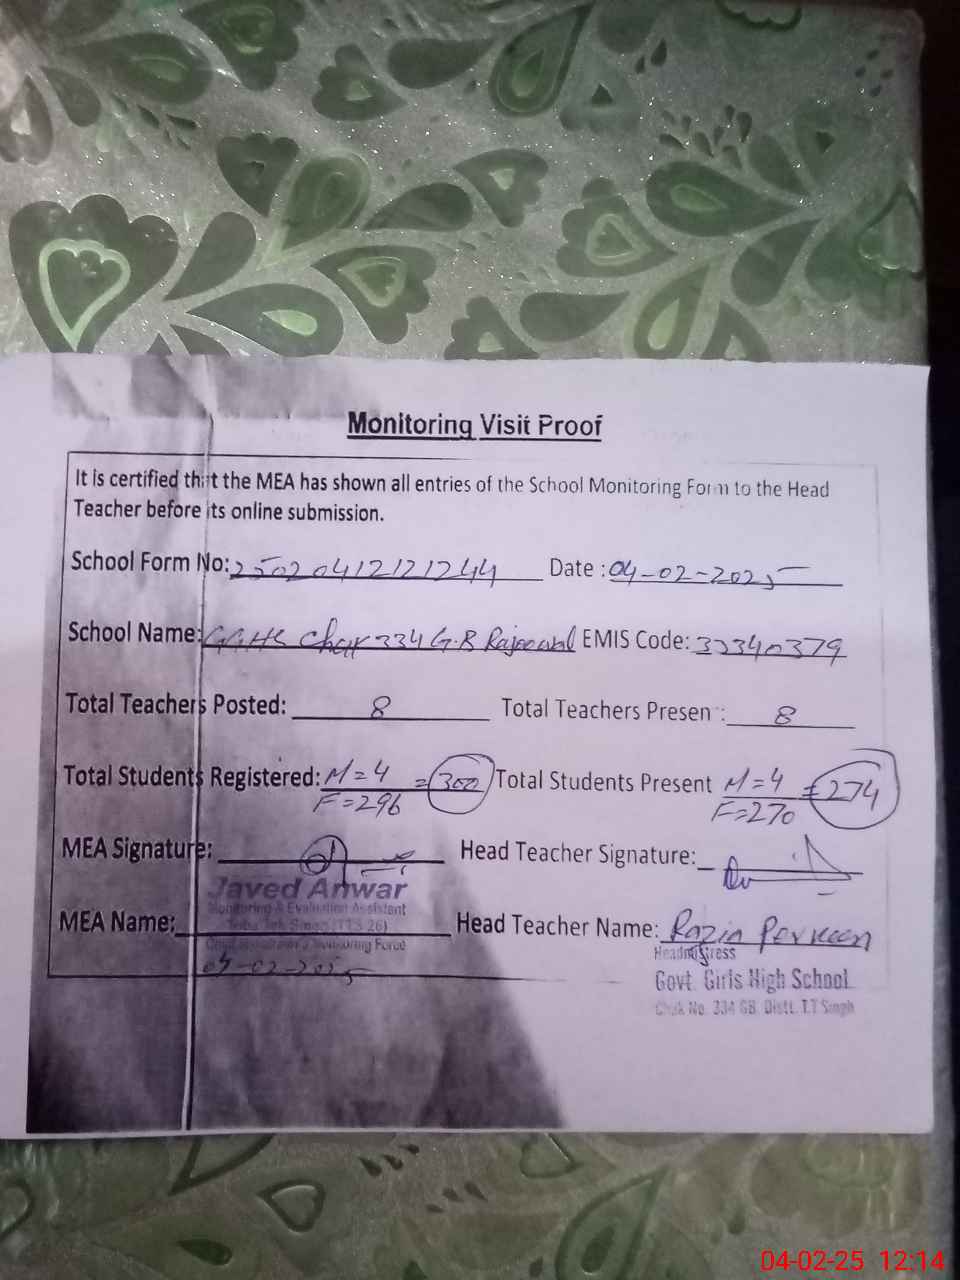 Monitoring Visit Proof
It is certified that the MEA has shown all entries of the School Monitoring Form to the Head
Teacher before its online submission.
School Form No: 25020412121244 Date : 04-02-2025
School Name: GGHS Chak 334 G.B Rajeowal EMIS Code: 33340379
Total Teachers Posted: 8 Total Teachers Presen : 8
Total Students Registered: M=4 = 300 Total Students Present M=4 = 274
F=296 F=270
MEA Signature: Head Teacher Signature:
Javed Anwar
Monitoring & Evaluation Assistant
MEA Name: Head Teacher Name: Razia Perveen
Monitoring Force
04-02-2025
Headmistress
Govt. Girls High School
Chak No. 334 GB. Distt. T.T Singh
04-02-25 12:14